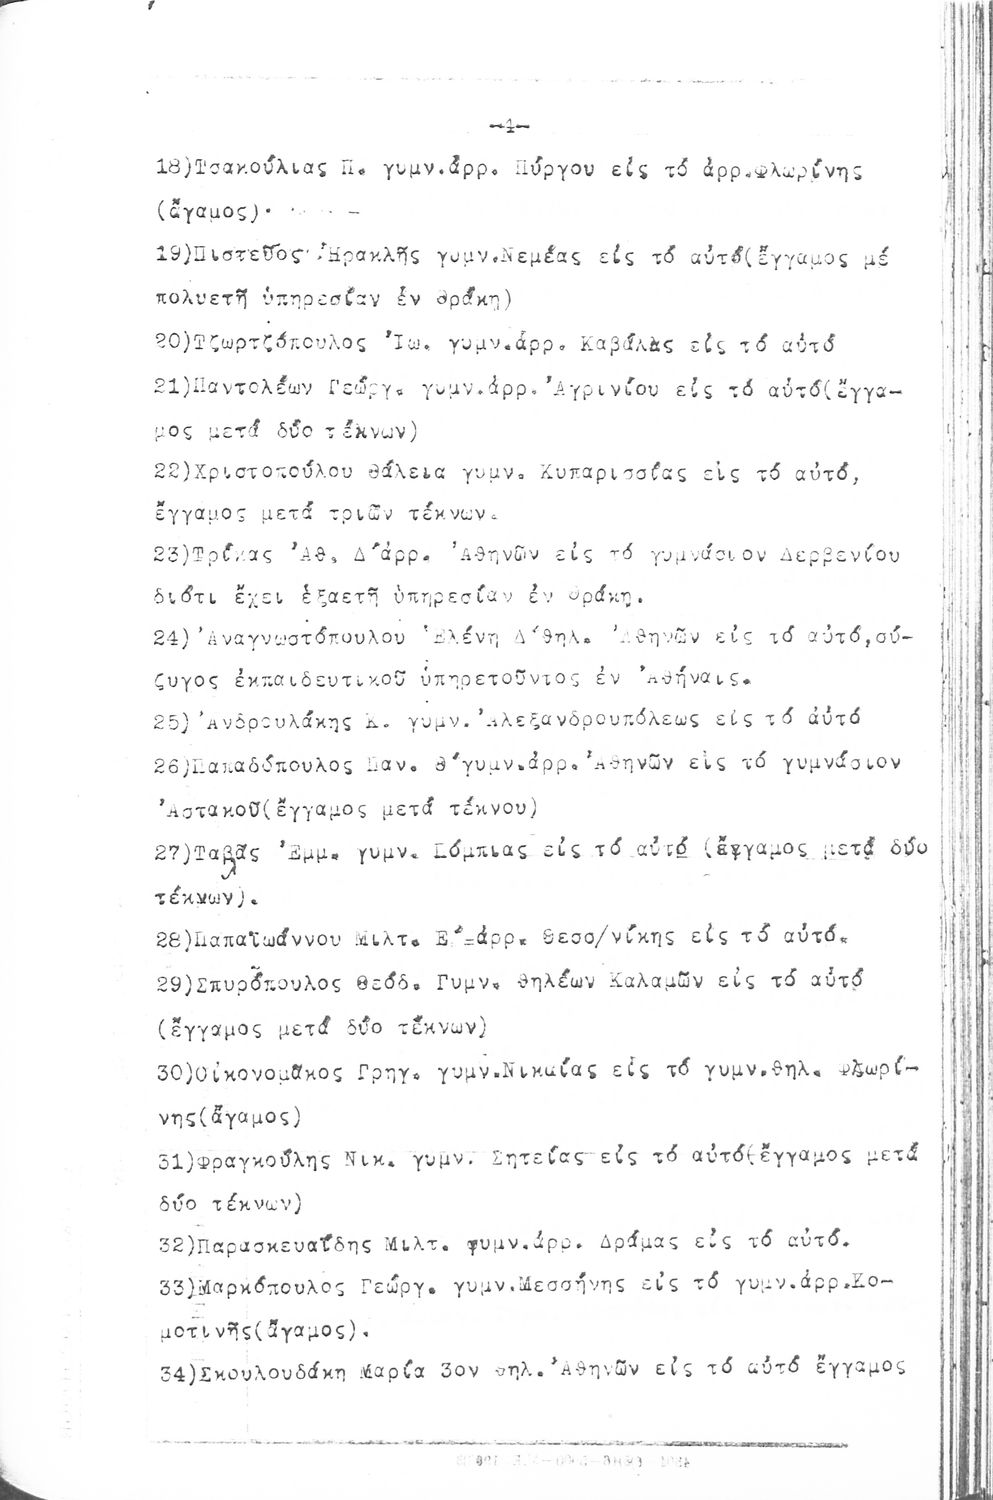 -4-
18)Τσακούλιας Π. γυμν.ἀρρ. Πύργου είς τό ἀρρ.Φλωρίνης
(ἄγαμος).
19)Πιστεῦος Ἡρακλῆς γυμν.Νεμέας είς τό αὐτό(ἔγγαμος μέ
πολυετῆ ὑπηρεσίαν ἐν Θράκη)
20)Τζωρτζόπουλος Ἰω. γυμν.ἀρρ. Καβάλας είς τό αὐτό
21)Παντολέων Γεώργ. γυμν.ἀρρ.Ἀγρινίου είς τό αὐτό(ἔγγα-
μος μετά δύο τέκνων)
22)Χριστοπούλου Θάλεια γυμν. Κυπαρισσίας είς τό αὐτό,
ἔγγαμος μετά τριῶν τέκνων.
23)Τρίκας Ἀθ. Δ΄ἀρρ. Ἀθηνῶν είς τό γυμνάσιον Δερβενίου
διότι ἔχει ἑξαετῆ ὑπηρεσίαν ἐν Θράκη.
24)Ἀναγνωστόπουλου Ἑλένη Δ΄θηλ. Ἀθηνῶν είς τό αὐτό,σύ-
ζυγος ἐκπαιδευτικοῦ ὑπηρετοῦντος ἐν Ἀθήναις.
25)Ἀνδρουλάκης Κ. γυμν.Ἀλεξανδρουπόλεως είς τό αὐτό
26)Παπαδόπουλος Παν. Θ΄γυμν.ἀρρ.Ἀθηνῶν είς τό γυμνάσιον
Ἀστακοῦ(ἔγγαμος μετά τέκνου)
27)Ταβλᾶς Ἐμμ. γυμν. Σόμπιας είς τό αὐτό (ἔγγαμος μετά δύο
τέκνων).
28)Παπαϊωάννου Μιλτ. Ε΄-ἀρρ. Θεσσ/νίκης είς τό αὐτό.
29)Σπυρόπουλος Θεόδ. Γυμν. Θηλέων Καλαμῶν είς τό αὐτό
(ἔγγαμος μετά δύο τέκνων)
30)Οἰκονομᾶκος Γρηγ. γυμν.Νικαίας είς τό γυμν.θηλ. Φλωρί-
νης(ἄγαμος)
31)Φραγκούλης Νικ. γυμν. Σητείας είς τό αὐτό(ἔγγαμος μετά
δύο τέκνων)
32)Παρασκευαΐδης Μιλτ. γυμν.ἀρρ. Δράμας είς τό αὐτό.
33)Μαρκόπουλος Γεώργ. γυμν.Μεσσήνης είς τό γυμν.ἀρρ.Κο-
μοτινῆς(ἄγαμος).
34)Σκουλουδάκη Μαρία 3ον θηλ.Ἀθηνῶν είς τό αὐτό ἔγγαμος